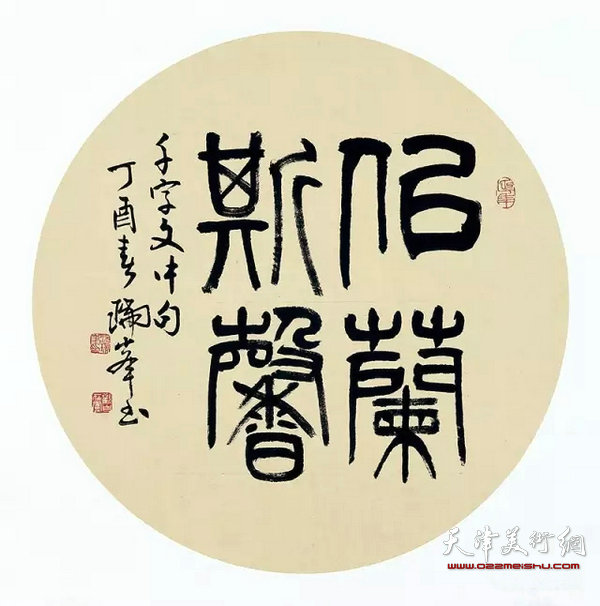 似蘭
斯馨
千字文中句
丁酉春峯书
天津美術網
www.022meishu.com